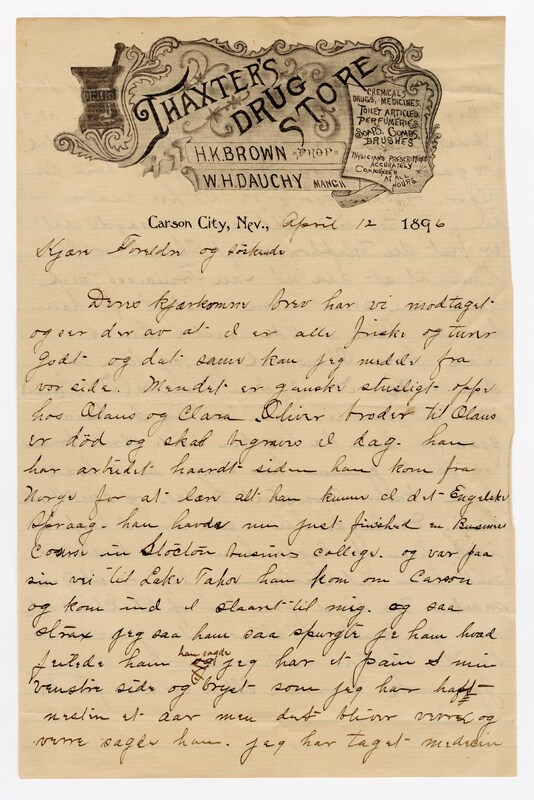 DRUGS
THAXTER'S
DRUG
STORE
H.K. BROWN PROP.
W.H. DAUCHY MANGR
CHEMICALS
DRUGS, MEDICINES,
TOILET ARTICLES
PERFUMERIES
SOAPS, COMBS,
BRUSHES.
PHYSICIANS PRESCRIPTIONS
ACCURATELY
COMPOUNDED
AT ALL
HOURS
Carson City, Nev., April 12 1896
Kjære Foreldre og söskende
Deres kjærkomne brev har vi modtaget
og ser der av at i er alle friske og
godt og dat same kan jeg medele fra
vor side. Mendet er ganske stusligt oppe
hos Olaus og Clara Oliver broder til Olaus
er död og skal begraves i dag. han
har arbeidet haardt siden han kom fra
Norge for at lære alt han kunne i det Engelske
Spraag. han havde nu just finished en Busines
Course in Stocton busines college. og var paa
sin vei til Lake Tahoe han kom om Carson
og kom ind i staaret til mig. og saa
strax jeg saa ham saa spurgte je ham hvad
feilede ham han sagde jeg har et pain i min
venstre side og bryst som jeg har haft
nesten et aar men det bliver verre og
verre sagde han. jeg har taget medicin